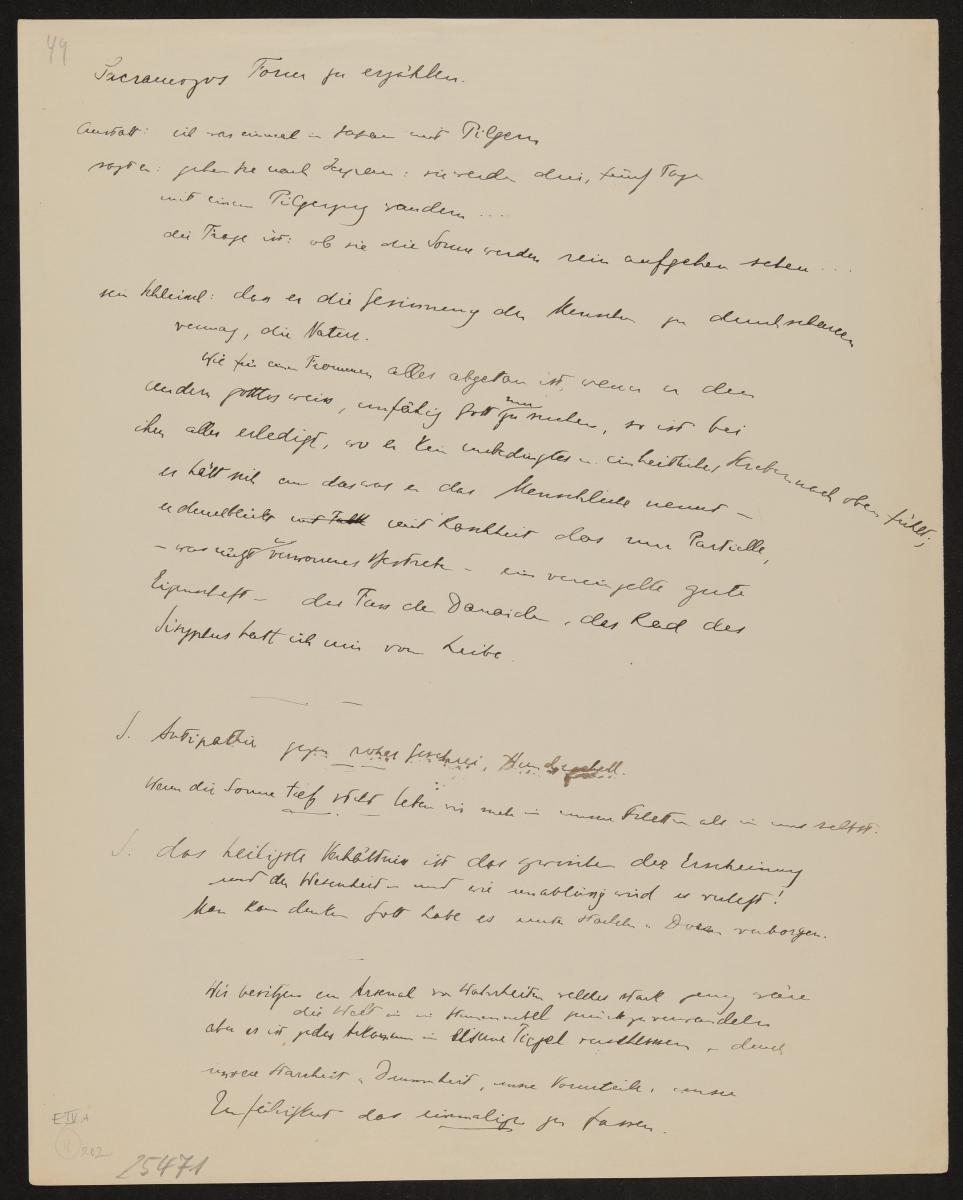 49
Sacramozos Form zu erzählen.
Anstatt: ich war einmal in Japan mit Pilgern
sagt er: gehen Sie nach Japan: sie werden drei, fünf Tage
mit einem Pilgerzug wandern ...
die Frage ist: ob sie die Sonne werden rein aufgehen sehen ...
sein Schlüssel: dass er die Gesinnung der Menschen zu durchschauen
vermag, die Natur.
Wie für einen Frommen alles abgetan ist, wenn er den
andern gottlos weiss, unfähig Gott nur zu suchen, so ist bei
ihm alles erledigt, wo er kein unbedingtes u. einheitliches Streben nach oben fühlt;
er hält sich an das was er das Menschliche nennt –
er durchblickt mit Raschheit das nur Partielle,
– was nützt verworrenes Bestreben – eine vereinzelte gute
Eigenschaft – das Fass der Danaiden, das Rad des
Sisyphus halt ich mir vom Leibe.
S. Antipathie gegen rohes Geschrei, Hundegebell.
Wenn die Sonne tief steht leben wir mehr in unserm Schatten als in uns selbst.
S. das heiligste Verhältnis ist das zwischen der Erscheinung
und der Wesenheit – und wie unablässig wird es verletzt!
Man kann denken Gott habe es unter Stacheln u. Dornen verborgen.
Wir besitzen ein Arsenal von Wahrheiten welches stark genug wäre
die Welt in einen Sternennebel zurückzuverwandeln
aber es ist jedes Arkanum in eisernem Tiegel verschlossen – durch
unsere Starrheit u. Dummheit, unsere Vorurteile, unsere
Unfähigkeit das einmalige zu fassen.
E IV A
202
25471